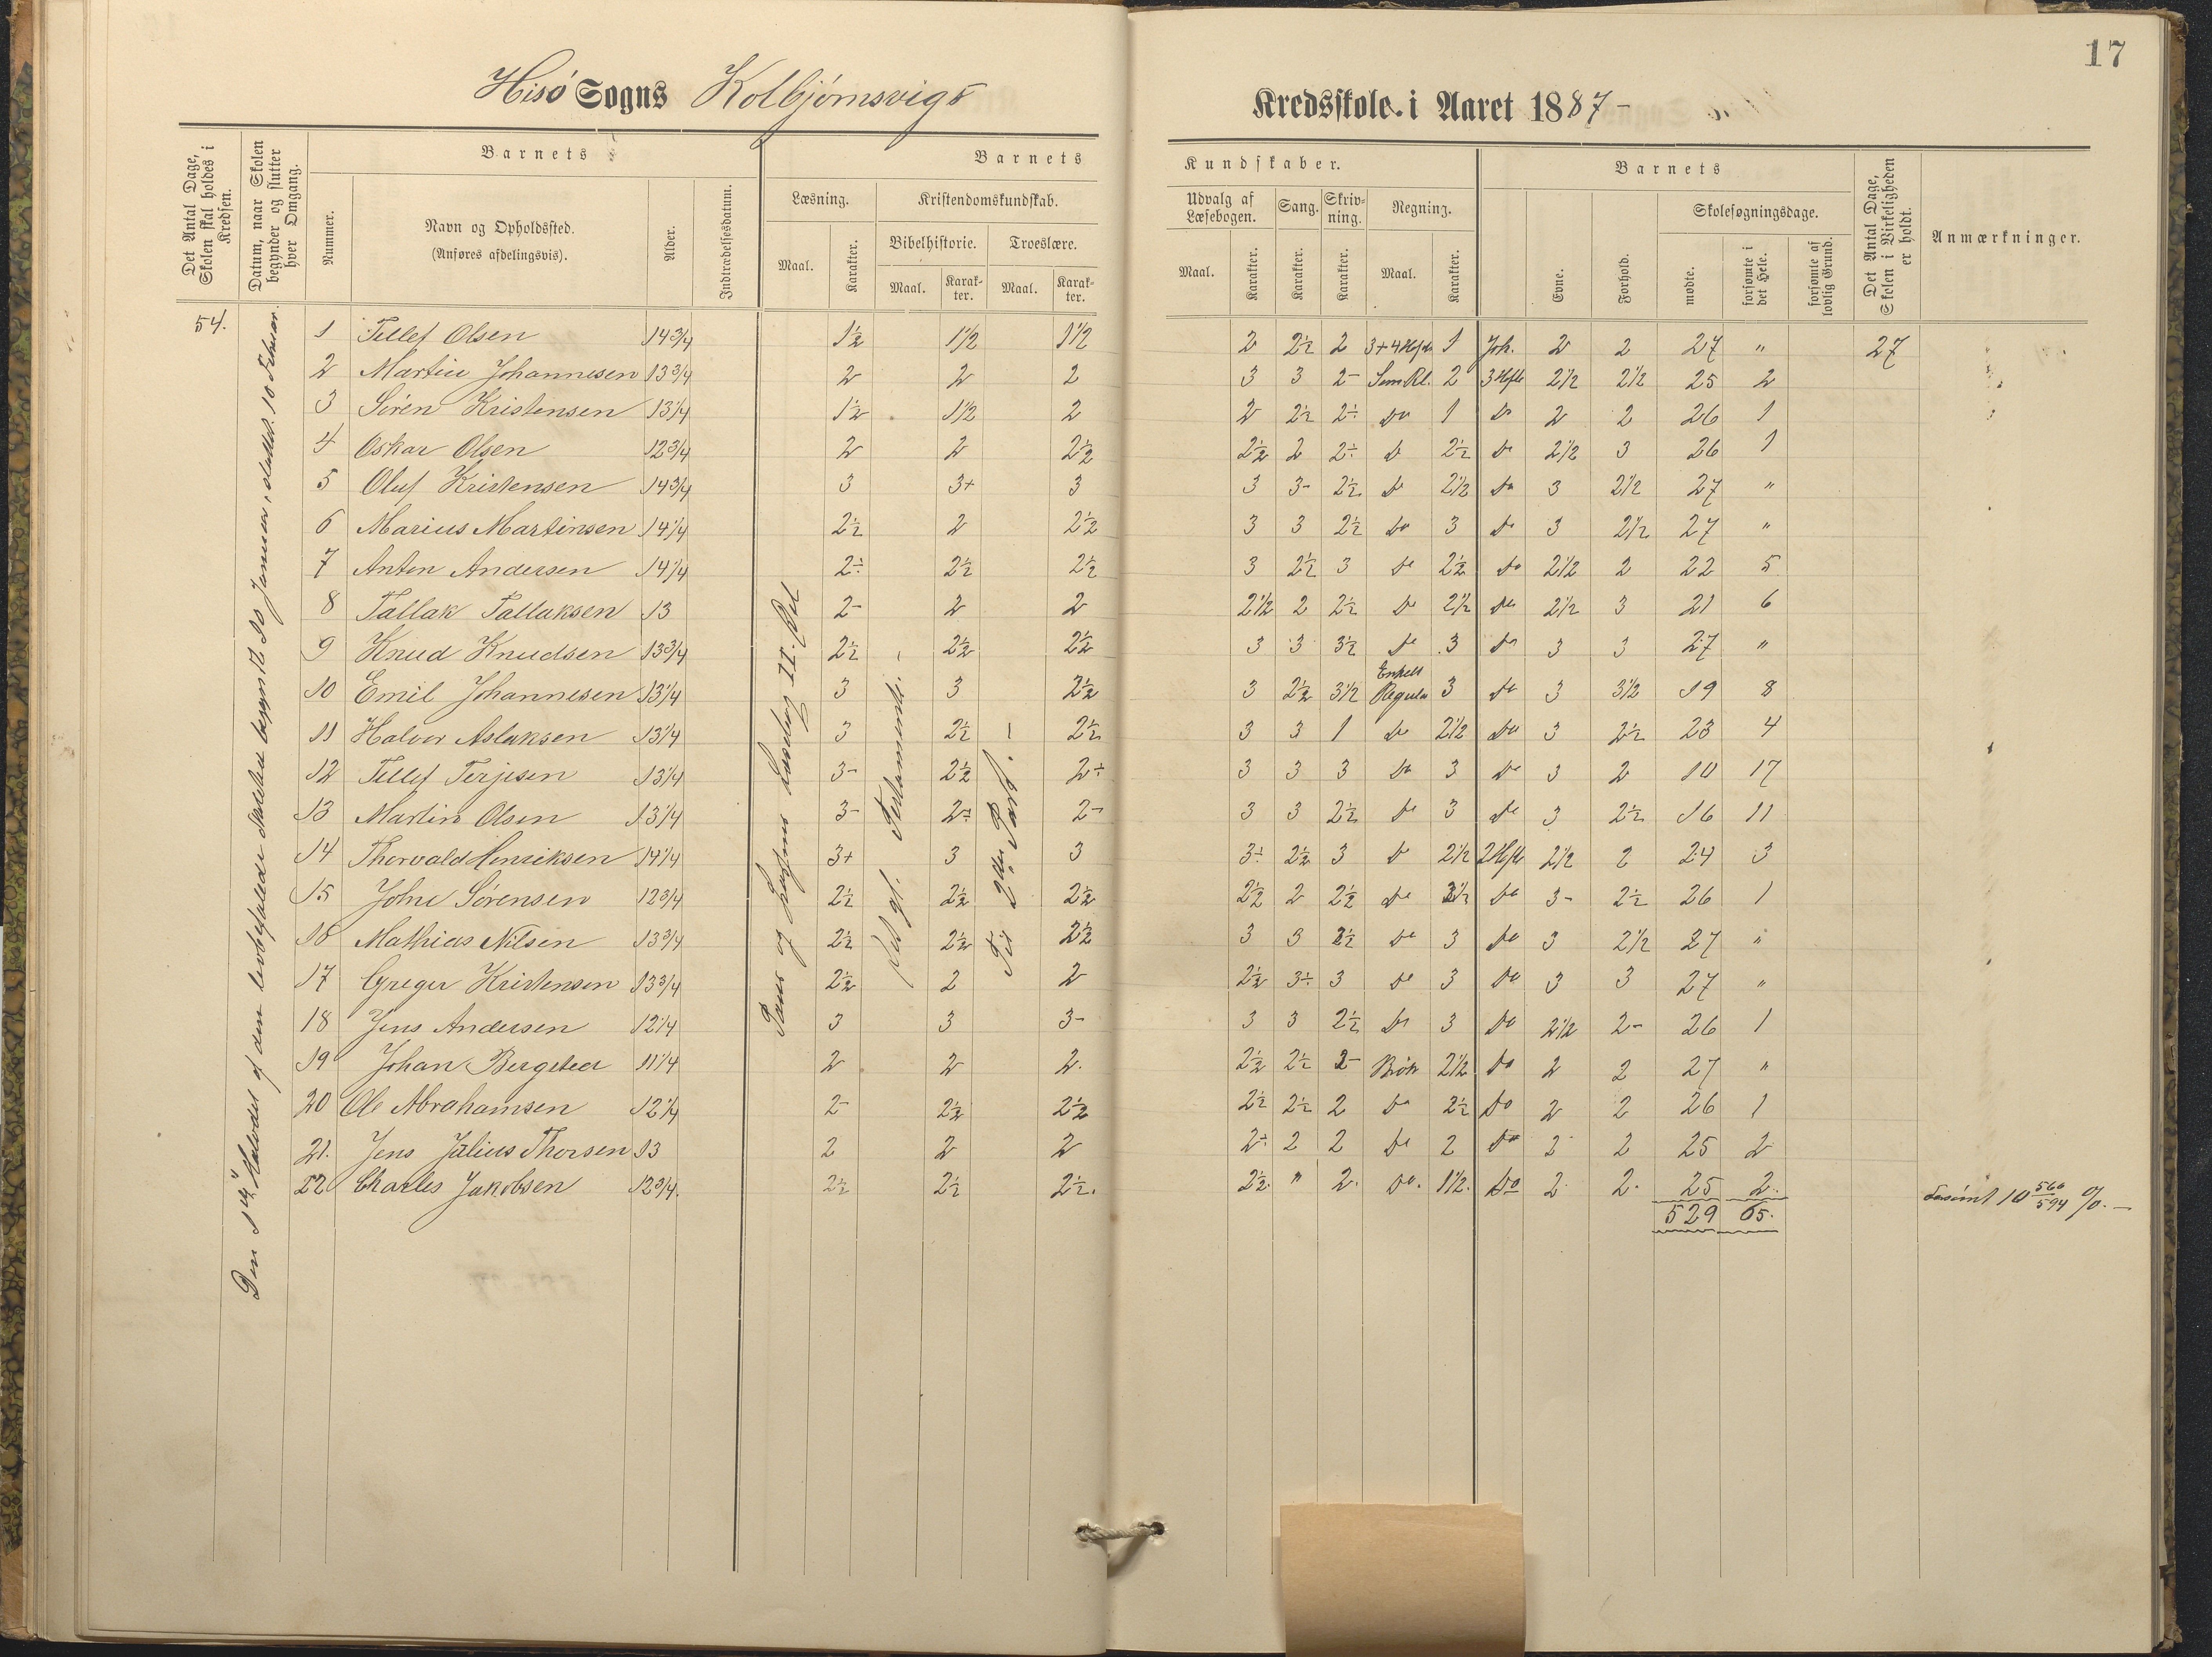 17
Hisö Sogns Kolbjörnsvigs Kredsskole i Aaret 1887-
Det Antal Dage, Skolen skal holdes i Kredsen.
Datum, naar Skolen begynder og slutter hver Omgang.
Barnets
Nummer.
Navn og Opholdssted.
(Anføres afdelingsvis).
Alder.
Indtrædelsesdatum.
Barnets Kundskaber.
Læsning.
Maal.
Karakter.
Kristendomskundskab.
Bibelhistorie.
Maal.
Karakter.
Troeslære.
Maal.
Karakter.
Udvalg af Læsebogen.
Maal.
Karakter.
Sang.
Karakter.
Skrivning.
Karakter.
Regning.
Maal.
Karakter.
Barnets
Evne.
Forhold.
Skolesøgningsdage.
mødte.
forsømte i det Hele.
forsømte af lovlig Grund.
Det Antal Dage, Skolen i Virkeligheden er holdt.
Anmærkninger.
54.
1 Tellef Olsen 14 3/4 1½ 1½ 1½ 2 2½ 2 3+4 Hefte 1 Joh. 2 2 27 " 27
2 Martin Johannesen 13 3/4 2 2 2 3 3 2- 2 3 Hefte 2½ 2½ 25 2
3 Sören Kristensen 13 1/4 1½ 1½ 2 2 2½ 2÷ Do 1 Do 2 2 26 1
4 Oskar Olsen 12 3/4 2 2 2½ 2½ 2 2÷ Do 2½ Do 2½ 3 26 1
5 Oluf Kristensen 14 3/4 3 3+ 3 3 3- 2½ Do 2½ Do 3 2½ 27 "
6 Marius Martinsen 14 1/4 2½ 2 2½ 3 3 2½ Do 3 Do 3 2½ 27 "
7 Anton Andersen 14 1/4 2÷ 2½ 2½ 3 2½ 3 Do 2½ Do 2½ 2 22 5
8 Tallak Tallaksen 13 2- 2 2 2½ 2 2½ Do 2½ Do 2½ 3 21 6
9 Knud Knudsen 13 3/4 2½ 2½ 2½ 3 3 3½ Do 3 Do 3 3 27 "
10 Emil Johannesen 13 1/4 3 3 2½ 3 2½ 3½ Enkelt Regula 3 Do 3 3½ 19 8
11 Halvor Aslaksen 13 1/4 3 2½ 2½ 3 3 1 Do 2½ Do 3 2½ 23 4
12 Tellef Terjesen 13 1/4 3- 2½ 2÷ 3 3 3 Do 3 Do 3 2 10 17
13 Martin Olsen 13 1/4 3- 2÷ 2- 3 3 2½ Do 3 Do 3 2½ 16 11
14 Thorvald Henriksen 14 1/4 3+ 3 3 3÷ 2½ 3 Do 2½ 2 Hefte 2½ 2 24 3
15 John Sörensen 12 3/4 2½ 2½ 2½ 2½ 2 2½ Do 3½ Do 3- 2½ 26 1
16 Mathias Nilsen 13 3/4 2½ 2½ 2½ 3 3 2½ Do 3 Do 3 2½ 27 "
17 Greger Kristensen 13 3/4 2½ 2 2 2½ 3÷ 3 Do 3 Do 3 3 27 "
18 Jens Andersen 12 1/4 3 3 3- 3 3 2½ Do 3 Do 2½ 2- 26 1
19 Johan 11 1/4 2 2 2. 2½ 2½ 2- Brök 2½ Do 2 2 27 "
20 Ole Abrahamsen 12 1/4 2- 2½ 2½ 2½ 2½ 2 Do 2½ Do 2 2 26 1
21. Jens Julius Thorsen 13 2 2 2 2÷ 2 2 Do 2 Do 2 2 25 2
22 Charles Jakobsen 12 3/4. 2½ 2½ 2½. 2½. " 2. Do. 1½. Do 2. 2. 25 2.
529 65.
Forsömt 10 560/594 %.-
II. Del
Testamente.
Til 2den Part.